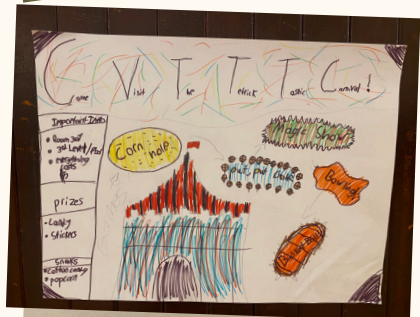 Come Visit The Tetrick Tastic Carnival!
Important Info
• Room 307
3rd Level / Pod
• everything
costs
prizes
• Candy
• Stickers
Snacks
• Cotton candy
• popcorn
Corn hole
Magic Show
put put Golf
Bowling